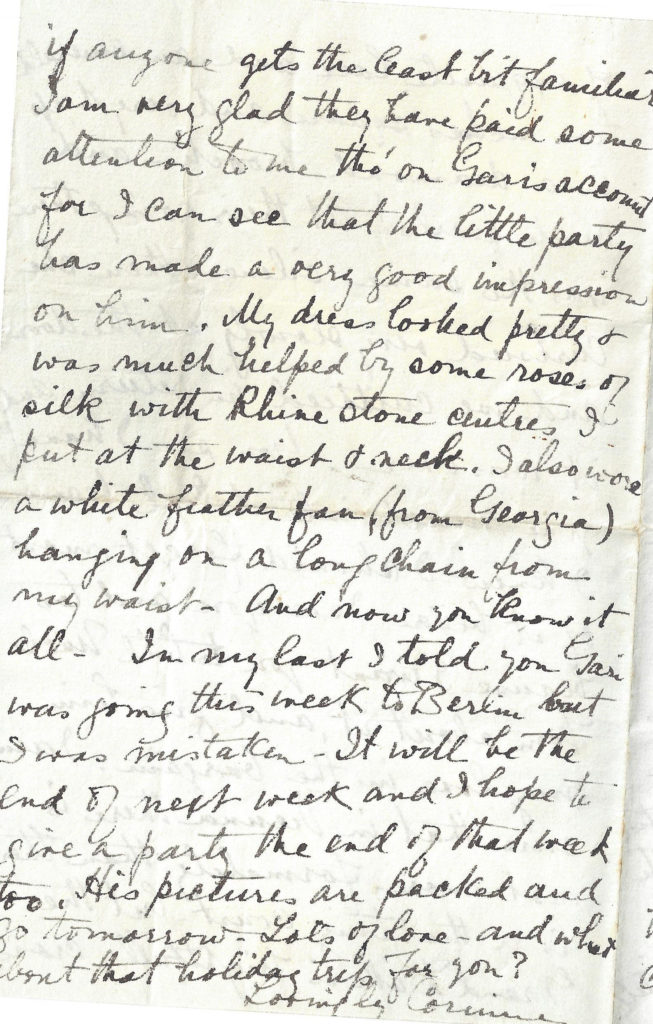 if anyone gets the least bit familiar
I am very glad they have paid some
attention to me tho' on Garis account
for I can see that the little party
has made a very good impression
on him. My dress looked pretty &
was much helped by some roses of
silk with Rhine stone centres I
put at the waist & neck. I also wore
a white feather fan (from Georgia)
hanging on a long chain from
my waist - And now you know it
all - In my last I told you Gari
was going this week to Berlin but
I was mistaken - It will be the
end of next week and I hope to
give a party the end of that week
too. His pictures are packed and
go tomorrow - Lots of love - and what
about that holiday trip for you?
Lovingly Corinne